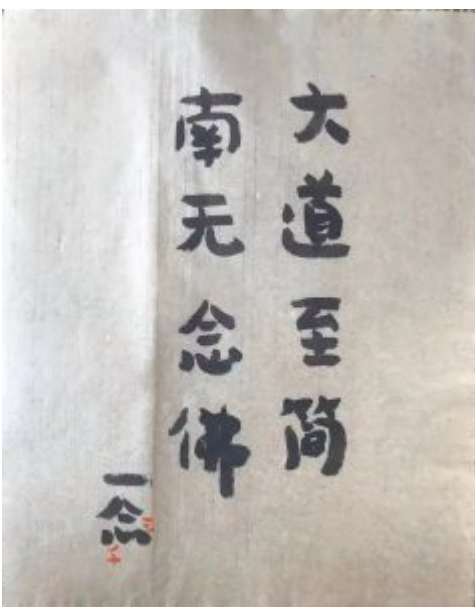 大道至简
南无念佛
一念